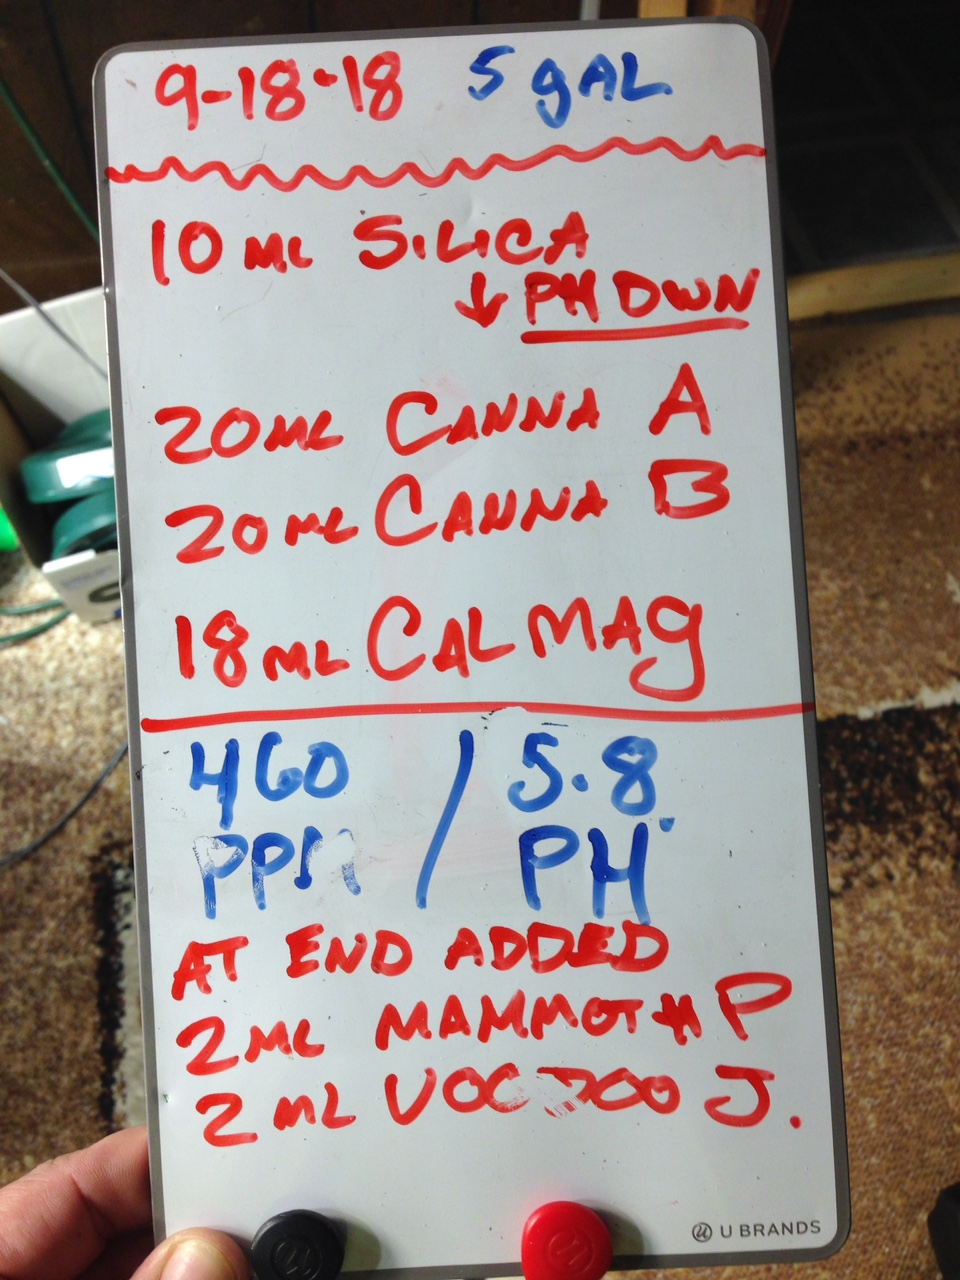 9-18-18 5 gAL
10 ML SILICA
↓ PH DWN
20ML CANNA A
20ML CANNA B
18ML CALMAg
460 / 5.8
PPM PH
AT END ADDED
2ML MAMMOTH P
2ML VOODOO J.
U BRANDS